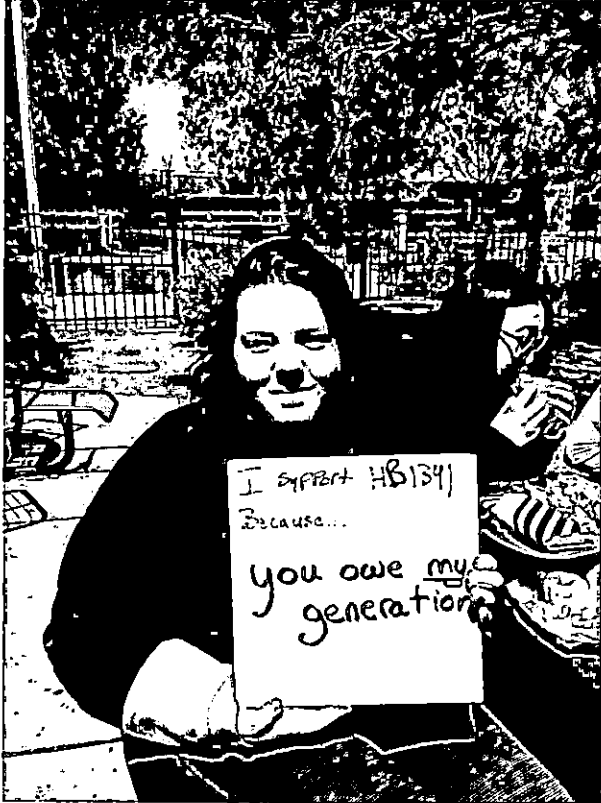 I support HB1341
Because...
you owe my
generation